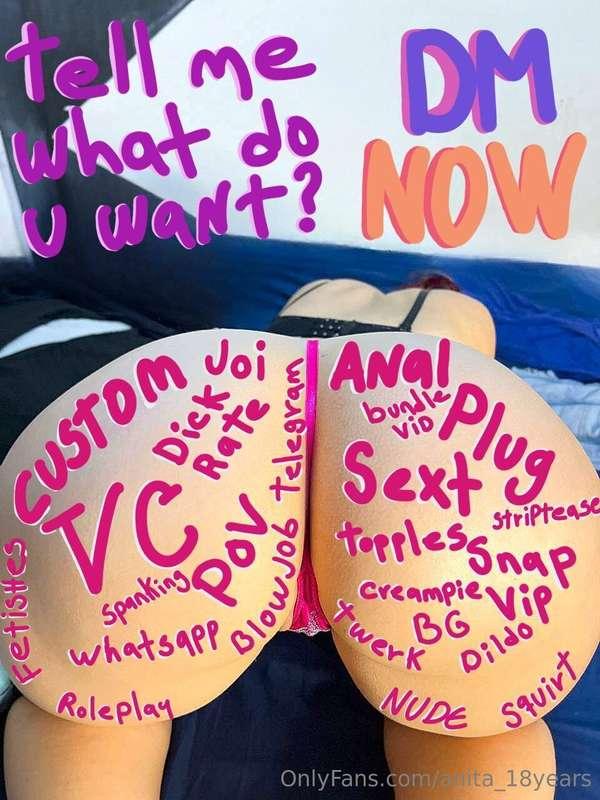 tell me
what do
u want?
DM
NOW
CUSTOM
Joi
Dick
Rate
telegram
VC
POV
Fetishes
spanking
whatsapp
Blowjob
Roleplay
ANal
bundle
viD
Plug
Sext
striptease
topples
Snap
creampie
Vip
twerk
BG
Dildo
NUDE
squirt
OnlyFans.com/anita_18years